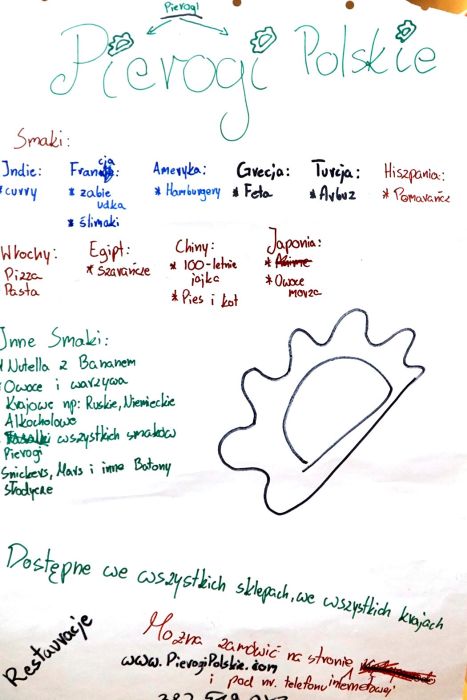 Pierogi
Pierogi Polskie
Smaki:
Indie:
* curry
Francja:
* żabie
udka
* ślimaki
Ameryka:
* Hamburgery
Grecja:
* Feta
Turcja:
* Arbuz
Hiszpania:
* Pomarańcz
Włochy:
Pizza
Pasta
Egipt:
* Szarańcze
Chiny:
* 100-letnie
jajka
* Pies i kot
Japonia:
* Anime
* Owoce
morza
Inne Smaki:
Nutella z Bananem
Owoce i warzywa
Krajowe np: Ruskie, Niemieckie
Alkocholowe
wszystkich smaków
Pierogi
Snickers, Mars i inne Batony
słodycze
Dostępne we wszystkich sklepach, we wszystkich krajach
Restauracje
Można zamówić na stronie
www.PierogiPolskie.com internetowej
i pod nr. telefonu